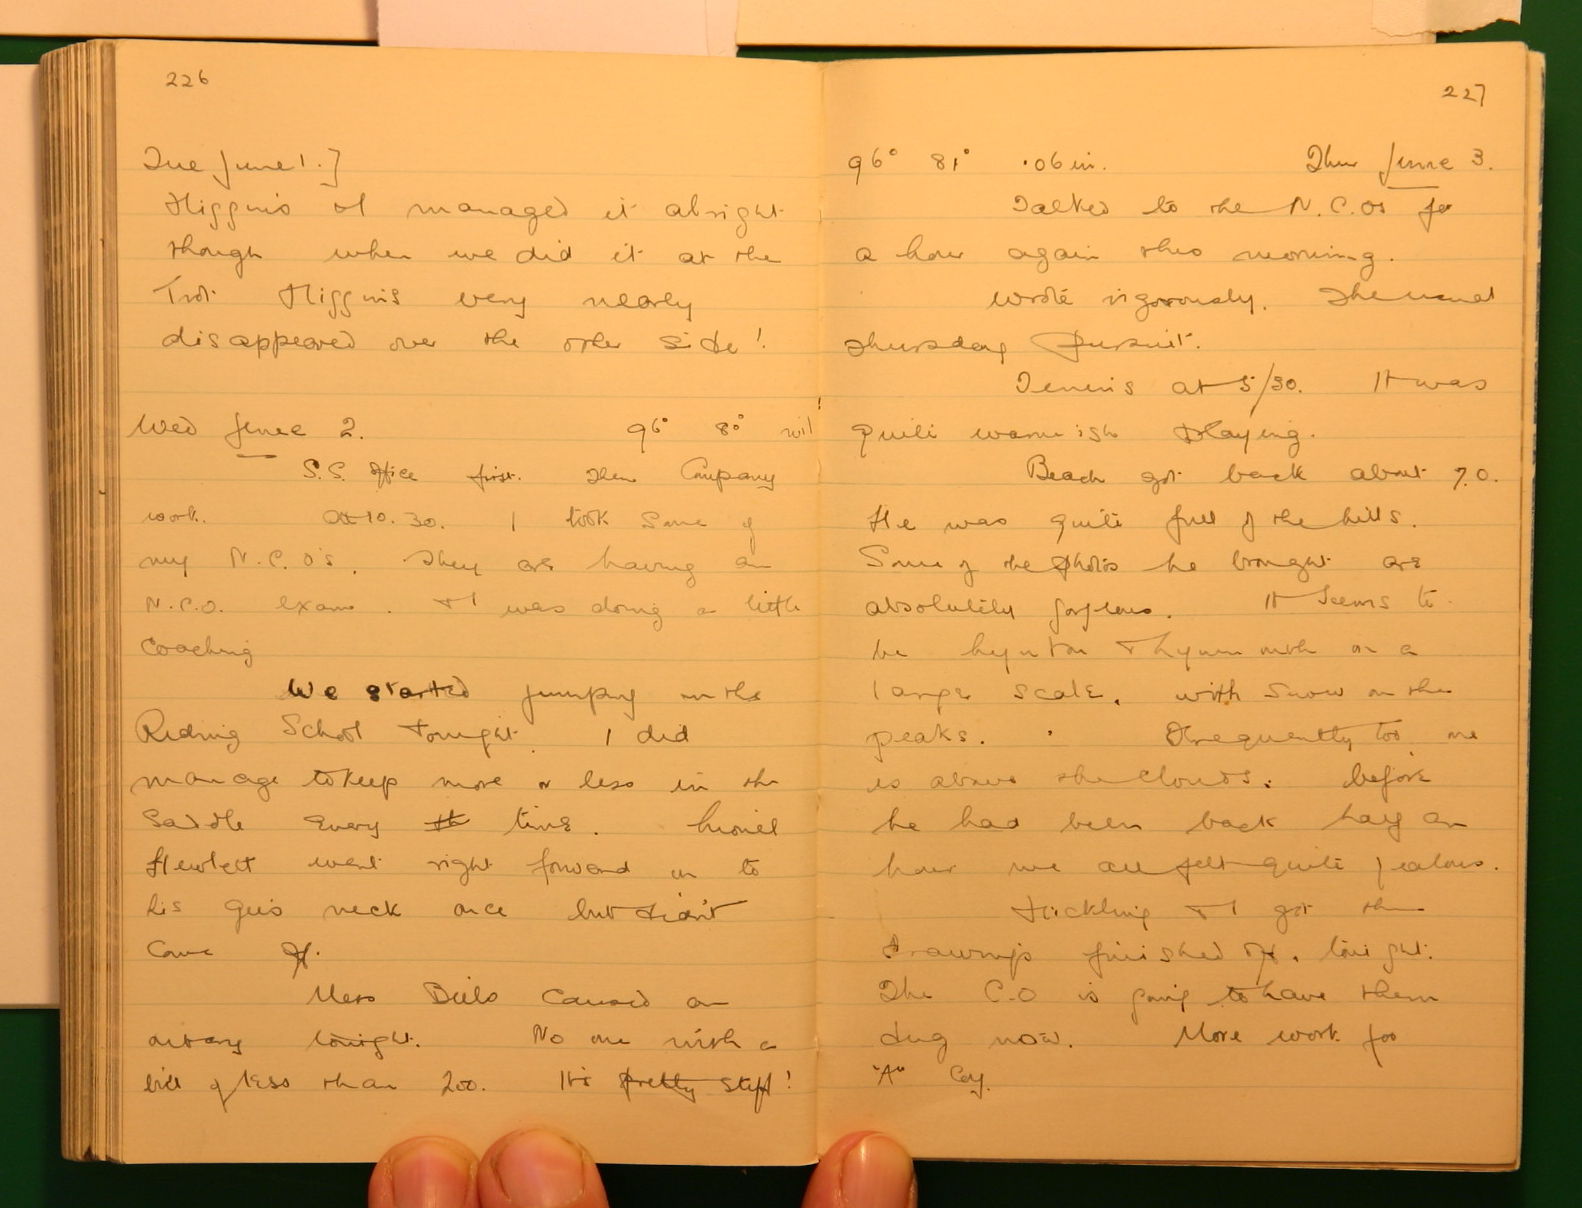 226
Tue June 1.]
Higgins & I managed it alright
though when we did it at the
Trot Higgins very nearly
disappeared over the other side!
Wed June 2. 96° 80° nil
S.S. Office first. Then Company
work. At 10.30. I took some of
my N.C.O's. They are having an
N.C.O. exam. & I was doing a little
coaching
We started jumping in the
Riding School tonight. I did
manage to keep more or less in the
saddle every time. Lionel
Hewlett went right forward on to
his gee's neck once but didn't
come off.
Mess Bills caused an
outcry tonight. No one with a
bill of less than 200. It's pretty stiff!
227
96° 81° .06 in. Thur June 3.
Talked to the N.C.Os for
a hour again this morning.
Wrote vigorously. The usual
Thursday pursuit.
Tennis at 5/30. It was
quite warmish playing.
Beach got back about 7.0.
He was quite full of the hills.
Some of the photos he brought are
absolutely gorgeous. It seems to
be Lynton & Lynmouth on a
large scale. with snow on the
peaks. Frequently too one
is above the clouds. Before
he had been back half an
hour we all felt quite jealous.
Hickling & I got the
drawings finished off. tonight.
The C.O is going to have them
dug now. More work for
"A" Coy.